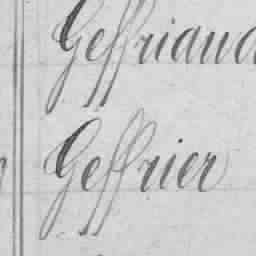 Geffriaud
Geffrier